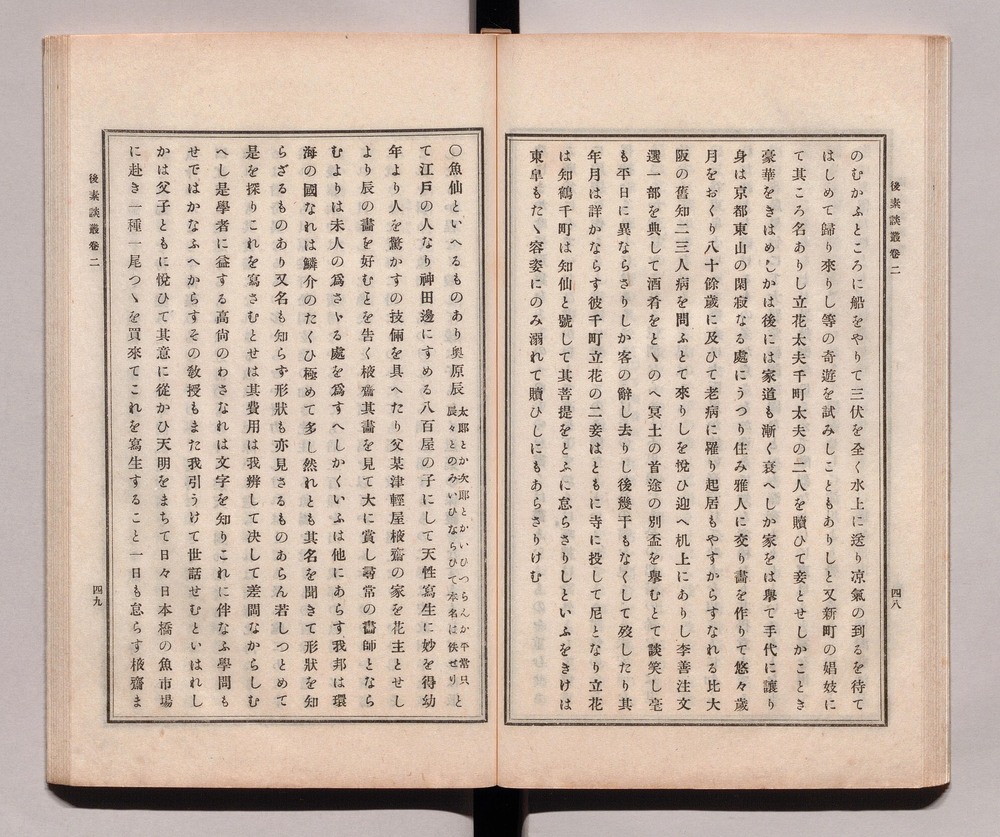 後素談叢卷二
四八
のむかふところに船をやりて三伏を全く水上に送り凉氣の到るを待て
はしめて歸り來りし等の奇遊を試みしこともありしと又新町の娼妓に
て其ころ名ありし立花太夫千町太夫の二人を贖ひて妾とせしかことき
豪華をきはめしかは後には家道も漸く衰へしか家をは擧て手代に讓り
身は京都東山の閑寂なる處にうつり住み雅人に交り書を作りて悠々歲
月をおくり八十餘歲に及ひて老病に罹り起居もやすからすなれる比大
阪の舊知二三人病を問ふとて來りしを悅ひ迎へ机上にありし李善注文
選一部を典して酒肴をとヽのへ冥土の首途の別盃を擧むとて談笑し毫
も平日に異ならさりしか客の辭し去りし後幾干もなくして歿したり其
年月は詳かならす彼千町立花の二妾はともに寺に投して尼となり立花
は知鶴千町は知仙と號して其菩提をとふに怠らさりしといふをきけは
東皐もたヽ容姿にのみ溺れて贖ひしにもあらさりけむ
〇魚仙といへるものあり奥原辰太郎とか次郎とかいひつらんか平常只辰々とのみいひならひて本名は佚せりと
て江戸の人なり神田邊にすめる八百屋の子にして天性寫生に妙を得幼
年より人を驚かすの技倆を具へたり父某津輕屋棭齋の家を花主とせし
より辰の畵を好むとを告く棭齋其畵を見て大に賞し尋常の畵師となら
むよりは未人の爲さヽる處を爲すへしかくいふは他にあらす我邦は環
海の國なれは鱗介のたくひ極めて多し然れとも其名を聞きて形狀を知
らざるものあり又名も知らす形狀も亦見さるものあらん若しつとめて
是を探りこれを寫さむとせは其費用は我辨して決して差閊なからしむ
へし是學者に益する高尙のわさなれは文字を知りこれに伴なふ學問も
せではかなふへからすその敎授もまた我引うけて世話せむといはれし
かは父子ともに悅ひて其意に從かひ天明をまちて日々日本橋の魚市場
に赴き一種一尾つヽを買來てこれを寫生すること一日も怠らす棭齋ま
後素談叢卷二
四九